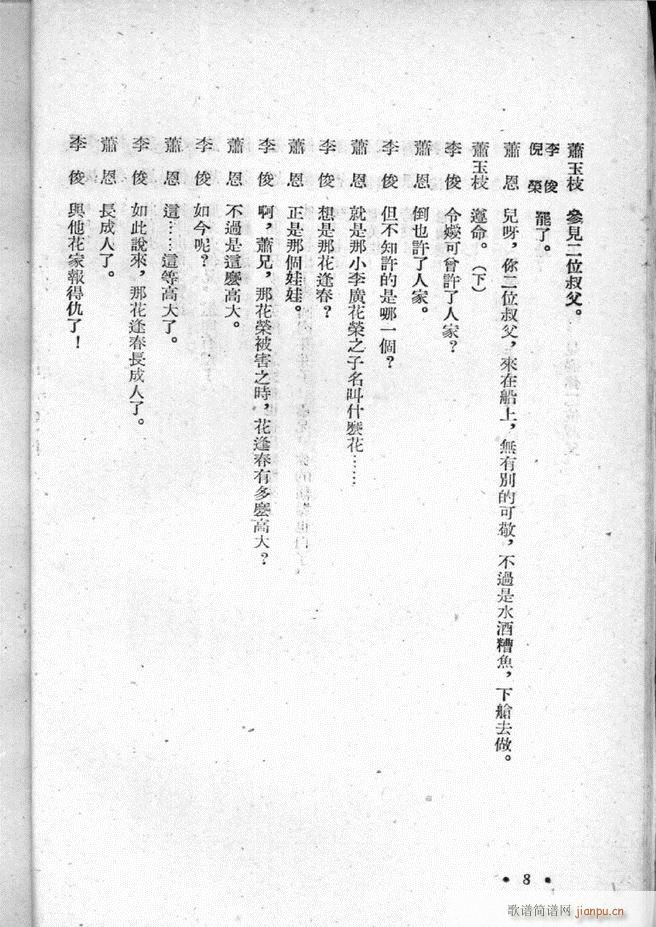 蕭玉枝　參見二位叔父。
李　俊
倪　榮　罷了。
蕭　恩　兒呀，你二位叔父，來在船上，無有別的可敬，不過是水酒糟魚，下艙去做。
蕭玉枝　遵命。（下）
李　俊　令嬡可曾許了人家？
蕭　恩　倒也許了人家。
李　俊　但不知許的是哪一個？
蕭　恩　就是那小李廣花榮之子名叫什麽花……
李　俊　想是那花逢春？
蕭　恩　正是那個娃娃。
李　俊　啊，蕭兄，那花榮被害之時，花逢春有多麽高大？
蕭　恩　不過是這麽高大。
李　俊　如今呢？
蕭　恩　這……這等高大了。
李　俊　如此說來，那花逢春長成人了。
蕭　恩　長成人了。
李　俊　與他花家報得仇了！
• 8 •
歌谱简谱网
jianpu.cn